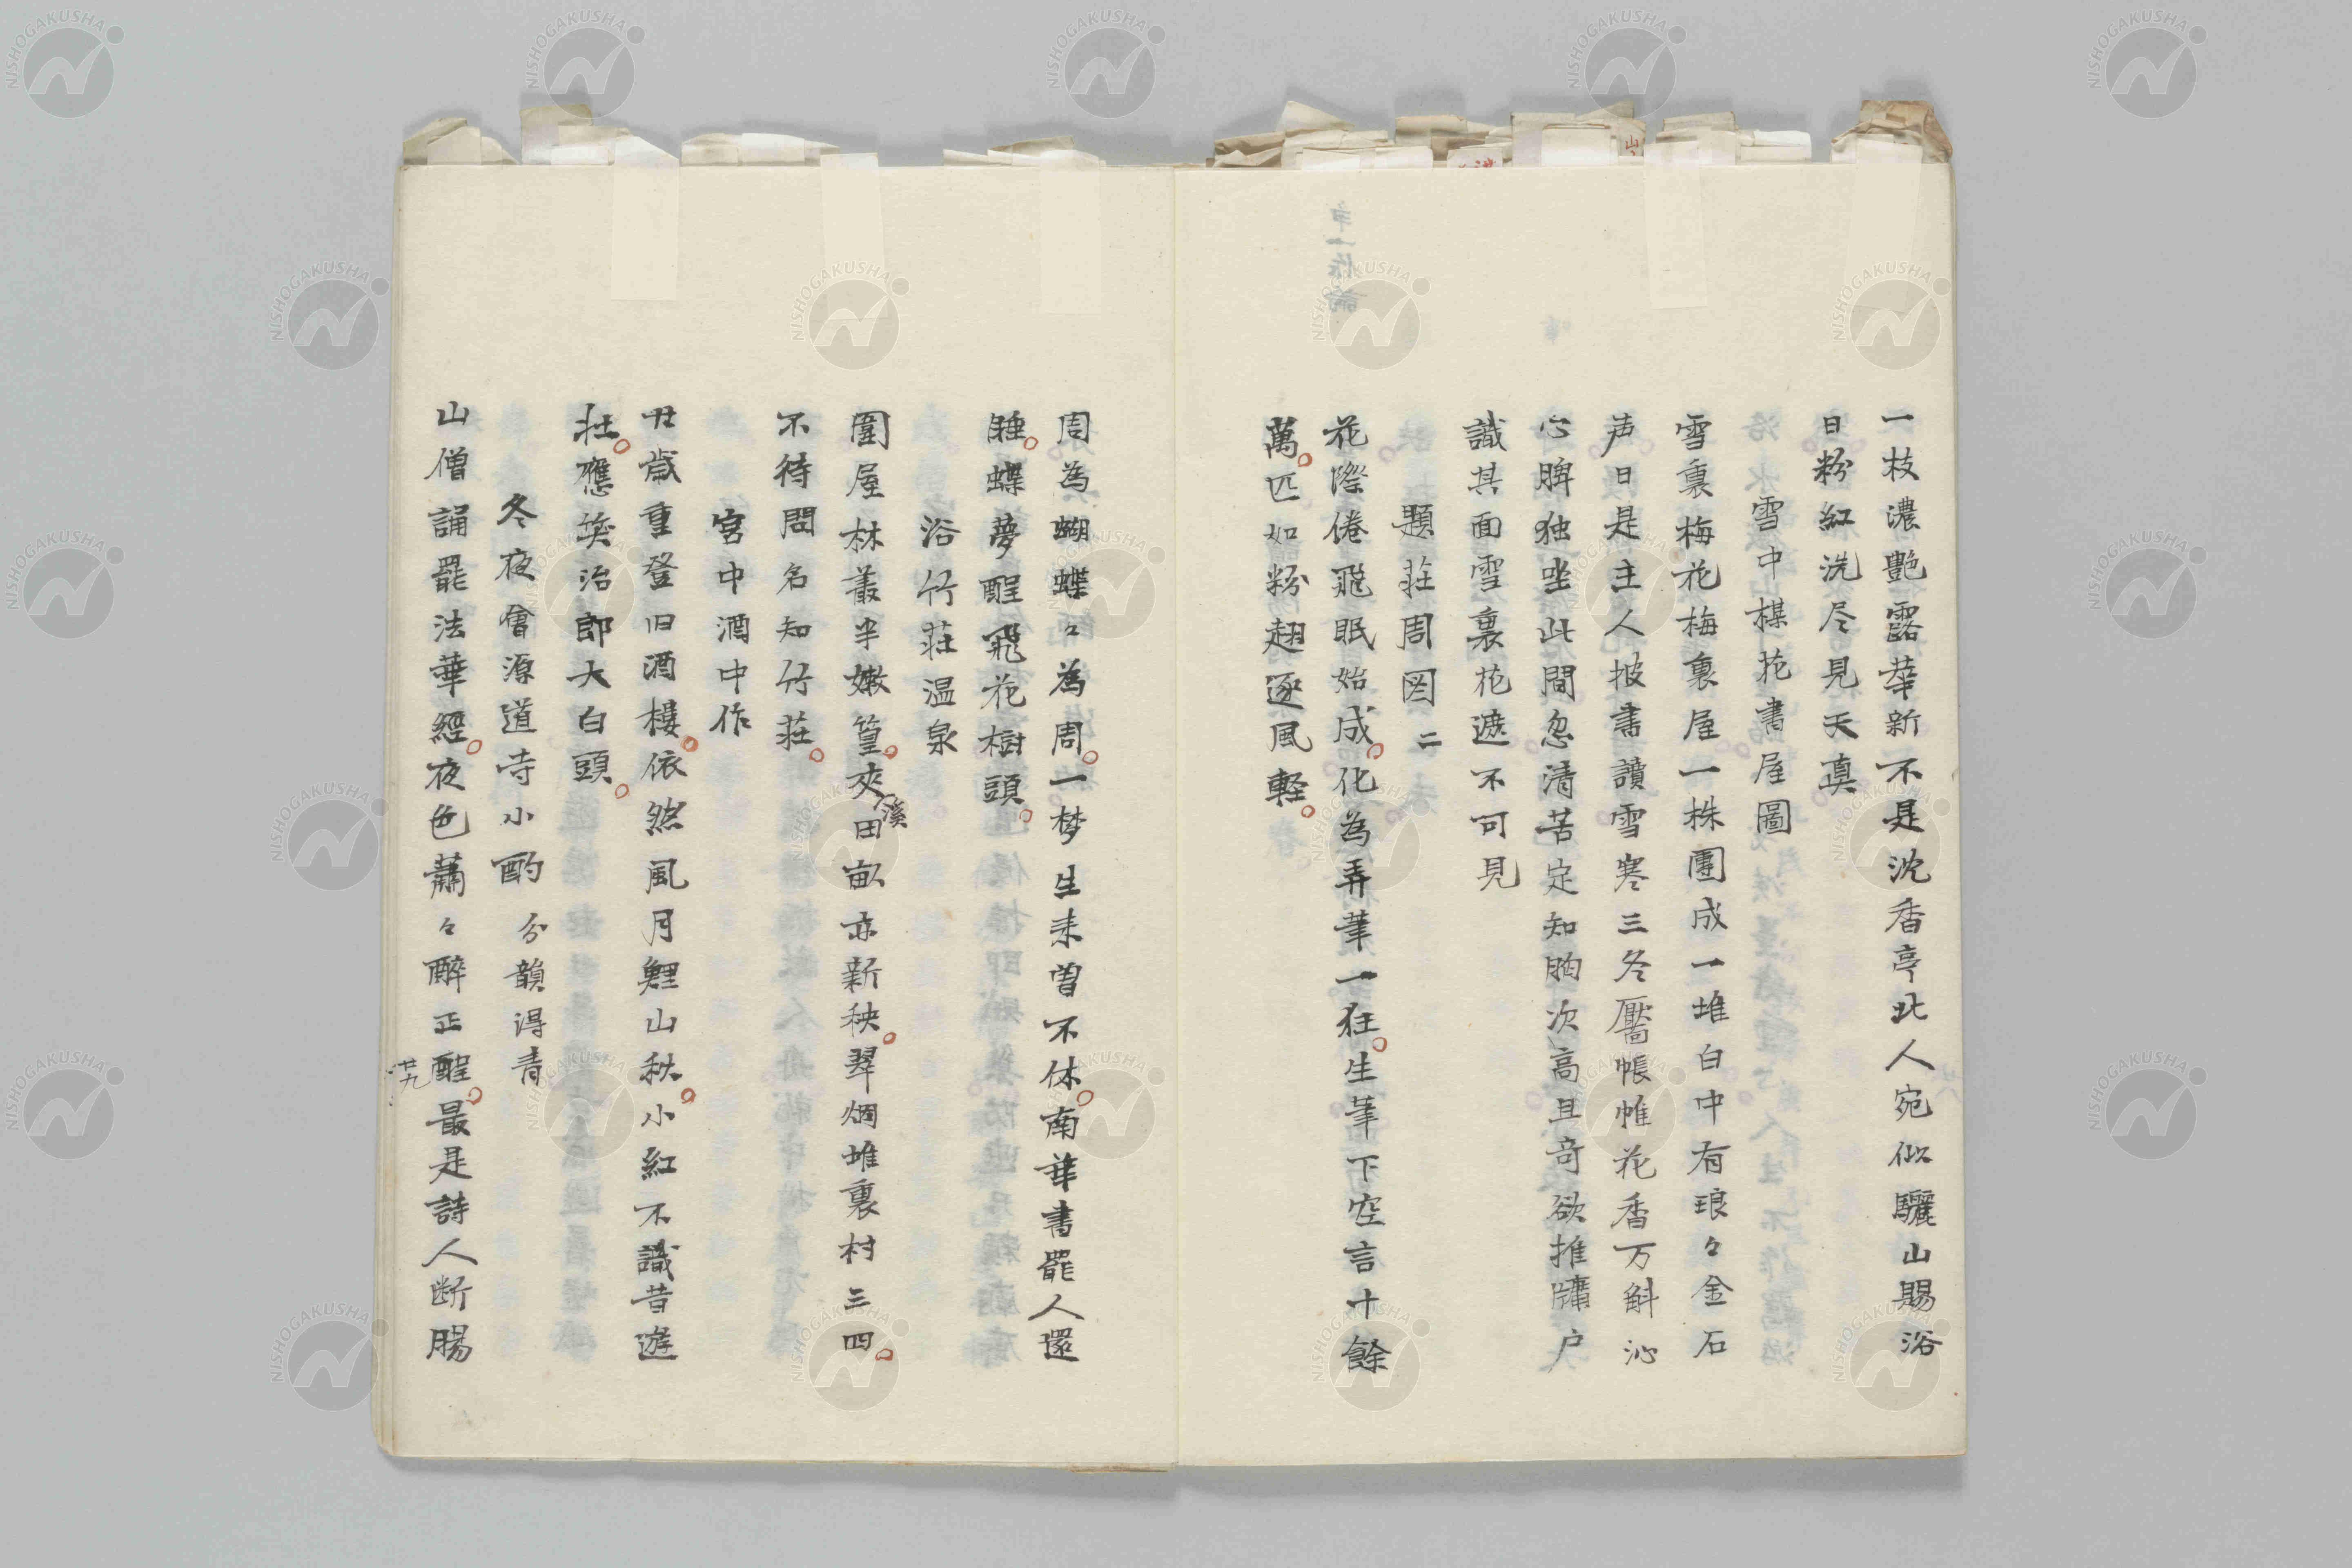 一枝濃艷露華新不是沈香亭北人宛似驪山賜浴
日粉紅洗尽見天真
雪中楳花書屋圖
雪裏梅花梅裏屋一株團成一堆白中有琅々金石
声曰是主人披書讀雪寒三冬壓帳帷花香万斛沁
心脾独坐此間忽清苦定知胸次高且奇欲推牗户
識其面雪裏花遮不可見
題荘周図 二
花際倦飛眠始成化為弄筆一狂生筆下空言十餘
萬匹如粉翅逐風軽
周為蝴蝶々為周一梦生来曽不休南華書罷人還
睡蝶夢醒飛花樹頭
浴竹荘温泉
圍屋林叢半嫩篁夾田畝亦新秧翠烟堆裏村三四
溪
不待問名知竹荘
宮中酒中作
廿歳重登旧酒樓依然風月鯉山秋小紅不識昔遊
壮應笑治郎大白頭
冬夜會源道寺小酌 分韻得青
山僧誦罷法華經夜色蕭々醉正醒最是詩人断腸
廿九
NISHOGAKUSHA